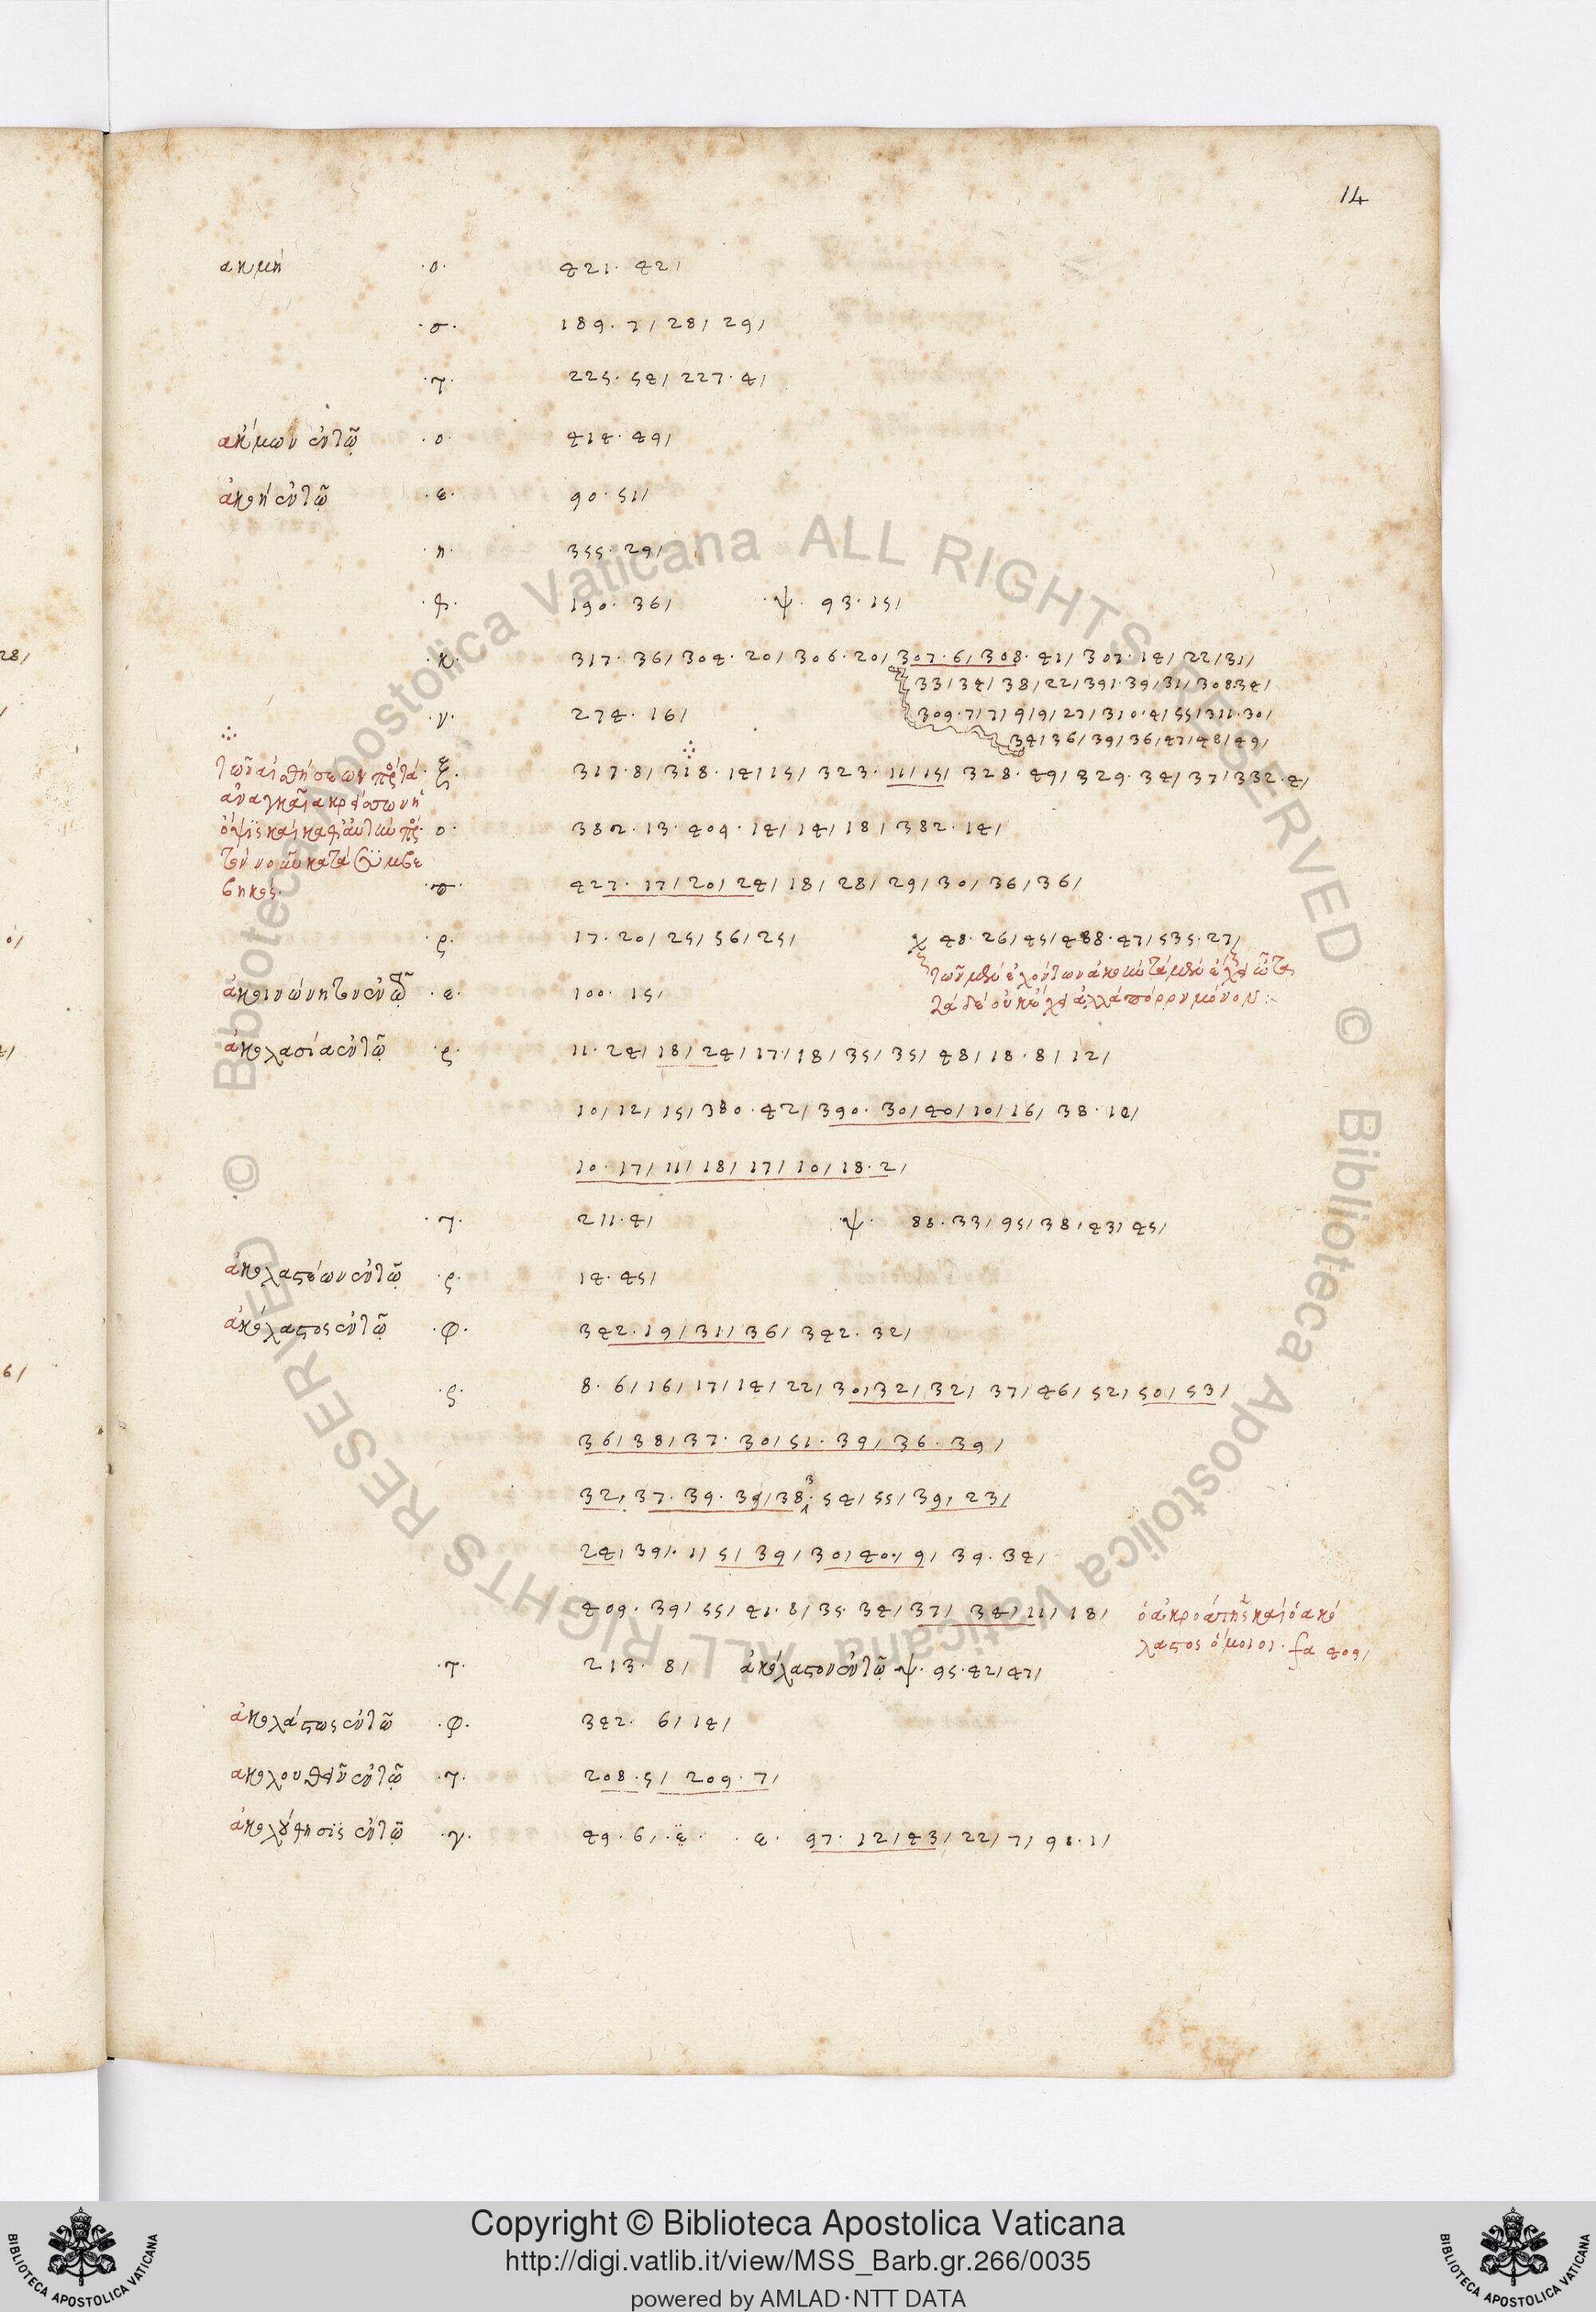 14
ακμή ·ο· 421· 42/
·σ· 189· 7/ 28/ 29/
·τ· 225· 54/ 227· 4/
ακ́μων ἐν τῷ ·ο· 414· 49/
ἀκοή ἐν τῷ ·ε· 90· 51/
·η· 355· 29/
190· 36/ ·ψ· 93· 15/
·κ· 317· 36/ 304· 20/ 306· 20/ 307· 6/ 308· 41/ 307· 14/ 22/ 31/
33/ 34/ 38/ 22/ 391· 39/ 31/ 308 34/
·ν· 274· 16/ 309· 7/ 7/ 9/ 9/ 27/ 310· 4/ 55/ 311· 30/
34/ 36/ 39/ 36/ 47/ 48/ 49/
τῶν αἰσθήσεων πρὸς τὰ ·ξ· 317· 8/ 318· 14/ 15/ 323· 11/ 15/ 328· 49/ 329· 34/ 37/ 332· 4/
ἀναγκαῖα κρείσσων ἡ
ὄψις καὶ καθ' αὑτὴν πρὸς ·ο· 382· 13· 409· 14/ 14/ 18/ 382· 14/
τὸν νοῦν κατὰ συμβε
βηκός· ·π· 427· 17/ 20/ 24/ 18/ 28/ 29/ 30/ 36/ 36/
·ς· 17· 20/ 25/ 56/ 25/ χ 48· 26/ 45/ 488· 47/ 535· 27/
ἀκοινώνητον ἐν τῷ ·ε· 100· 15/
ἀκολασία ἐν τῷ ·ς· 11· 24/ 18/ 24/ 17/ 18/ 35/ 35/ 48/ 18· 8/ 12/
10/ 12/ 15/ 380· 42/ 390· 30/ 40/ 10/ 16/ 38· 14/
10· 17/ 11/ 18/ 17/ 10/ 18· 2/
·τ· 211· 4/ ·ψ· 88· 33/ 95/ 38/ 43/ 45/
ἀκολασταίνων ἐν τῷ ·ς· 14· 45/
ἀκόλαστος ἐν τῷ ·φ· 342· 19/ 31/ 36/ 342· 32/
·ς· 8· 6/ 16/ 17/ 14/ 22/ 30/ 32/ 32/ 37/ 46/ 52/ 50/ 53/
36/ 38/ 37· 30/ 51· 39/ 36· 39/
32/ 37· 39· 39/ 38· 3 54/ 55/ 39/ 23/
24/ 39/· 1/ 5/ 39/ 30/ 40·/ 9/ 39· 34/
409· 39/ 55/ 41· 8/ 35· 34/ 37/ 34/ 11/ 18/ ὁ ἀκρατὴς καὶ ὁ ἀκό
λαστος ὅμοιοι· fa 409/
·τ· 213· 8/ ἀκόλαστον ἐν τῷ ψ· 95· 42/ 47/
ἀκολάστως ἐν τῷ ·φ· 342· 6/ 14/
ἀκολουθεῖν ἐν τῷ ·τ· 208· 5/ 209· 7/
ἀκολούθησις ἐν τῷ ·γ· 49· 6/ ·ε· ·ε· 97· 12/ 43/ 22/ 7/ 98· 1/
28/
6/
© Biblioteca Apostolica Vaticana ALL RIGHTS RESERVED © Biblioteca Apostolica Vaticana ALL RIGHTS RESERVED
BIBLIOTECA APOSTOLICA VATICANA
Copyright © Biblioteca Apostolica Vaticana
http://digi.vatlib.it/view/MSS_Barb.gr.266/0035
powered by AMLAD·NTT DATA
BIBLIOTECA APOSTOLICA VATICANA